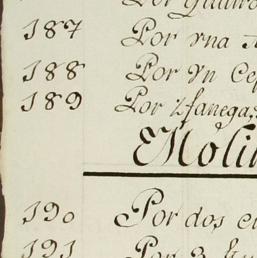 Por
187 Por vna
188 Por Vn
189 Por 2 fanegas
Moli
190 Por dos
191 Por 2